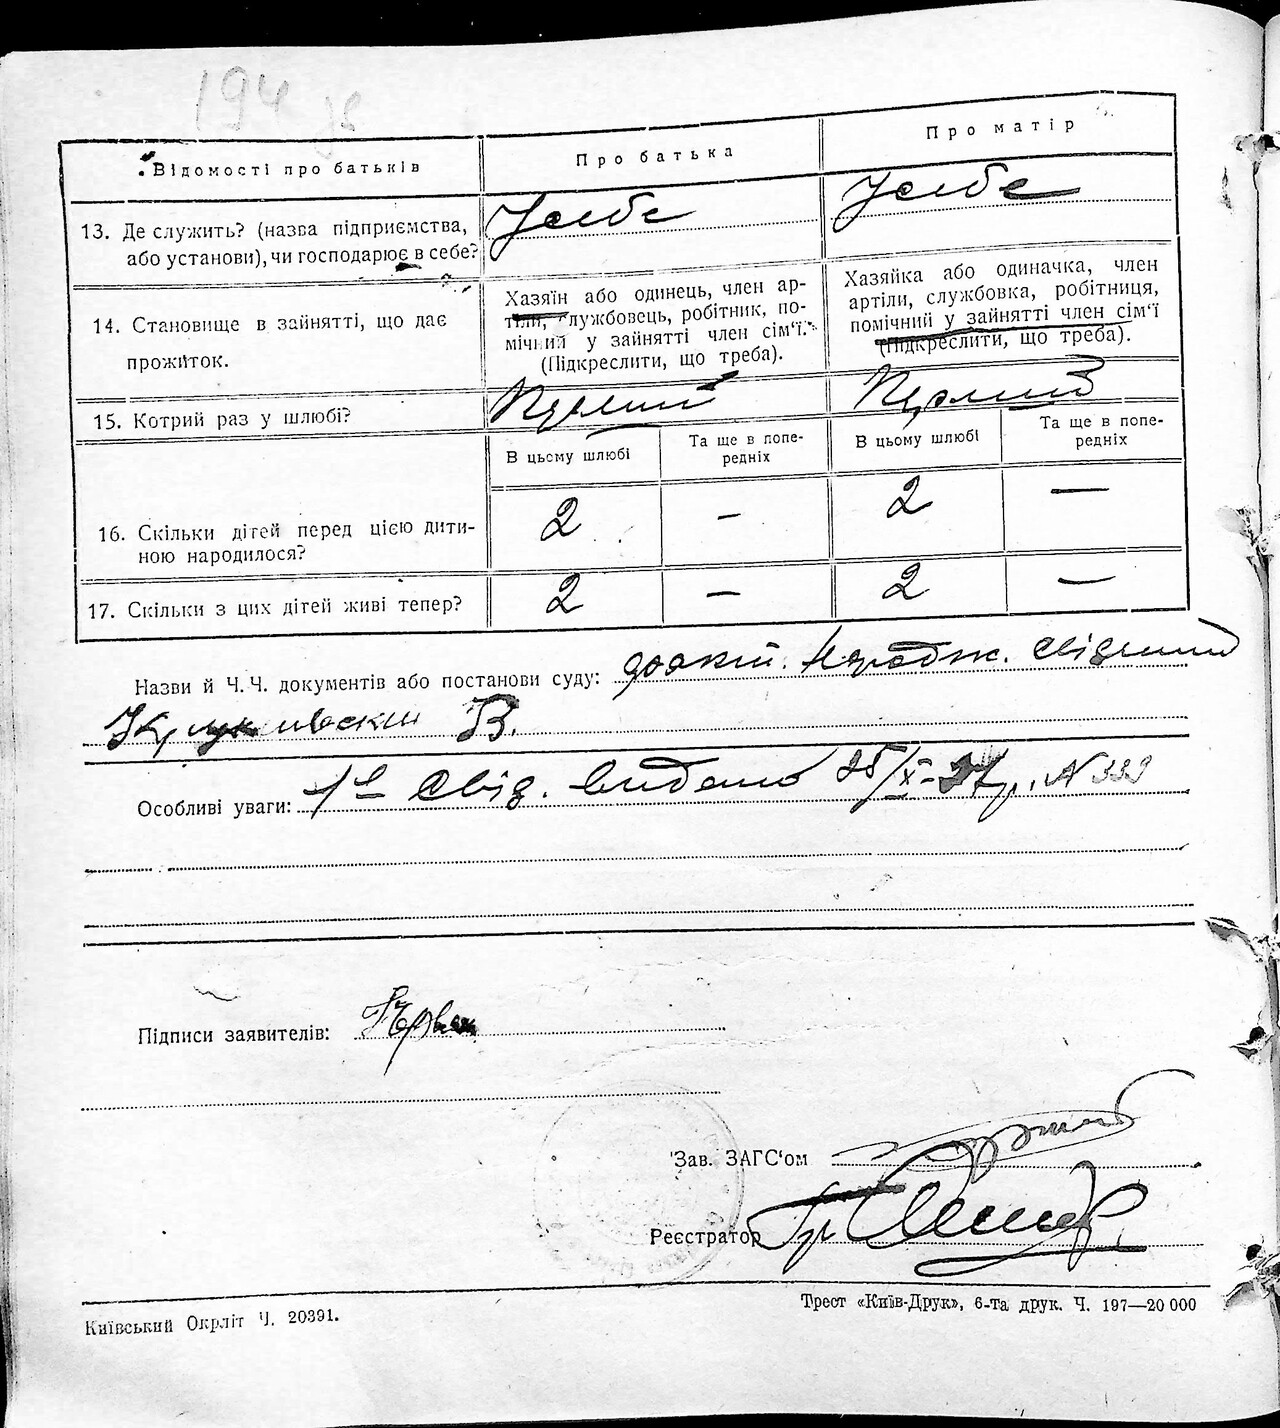 194
Відомості про батьків
Про батька
Про матір
13. Де служить? (назва підприємства,
або установи), чи господарює в себе?
У себе
У себе
14. Становище в зайнятті, що дає
прожиток.
Хазяїн або одинець, член ар-
тіли, службовець, робітник, по-
мічний у зайнятті член сім'ї.
(Підкреслити, що треба).
Хазяйка або одиначка, член
артіли, службовка, робітниця,
помічний у зайнятті член сім'ї
(Підкреслити, що треба).
15. Котрий раз у шлюбі?
Перший
Перший
В цьому шлюбі
Та ще в попе-
редніх
В цьому шлюбі
Та ще в попе-
редніх
16. Скільки дітей перед цією дити-
ною народилося?
2
—
2
—
17. Скільки з цих дітей живі тепер?
2
—
2
—
Назви й Ч.Ч. документів або постанови суду:
В.
Особливі уваги: свід. видано
Підписи заявителів:
Зав. ЗАГС'ом
Реєстратор
Київський Окрліт Ч. 20391.
Трест «Київ-Друк», 6-та друк. Ч. 197—20 000